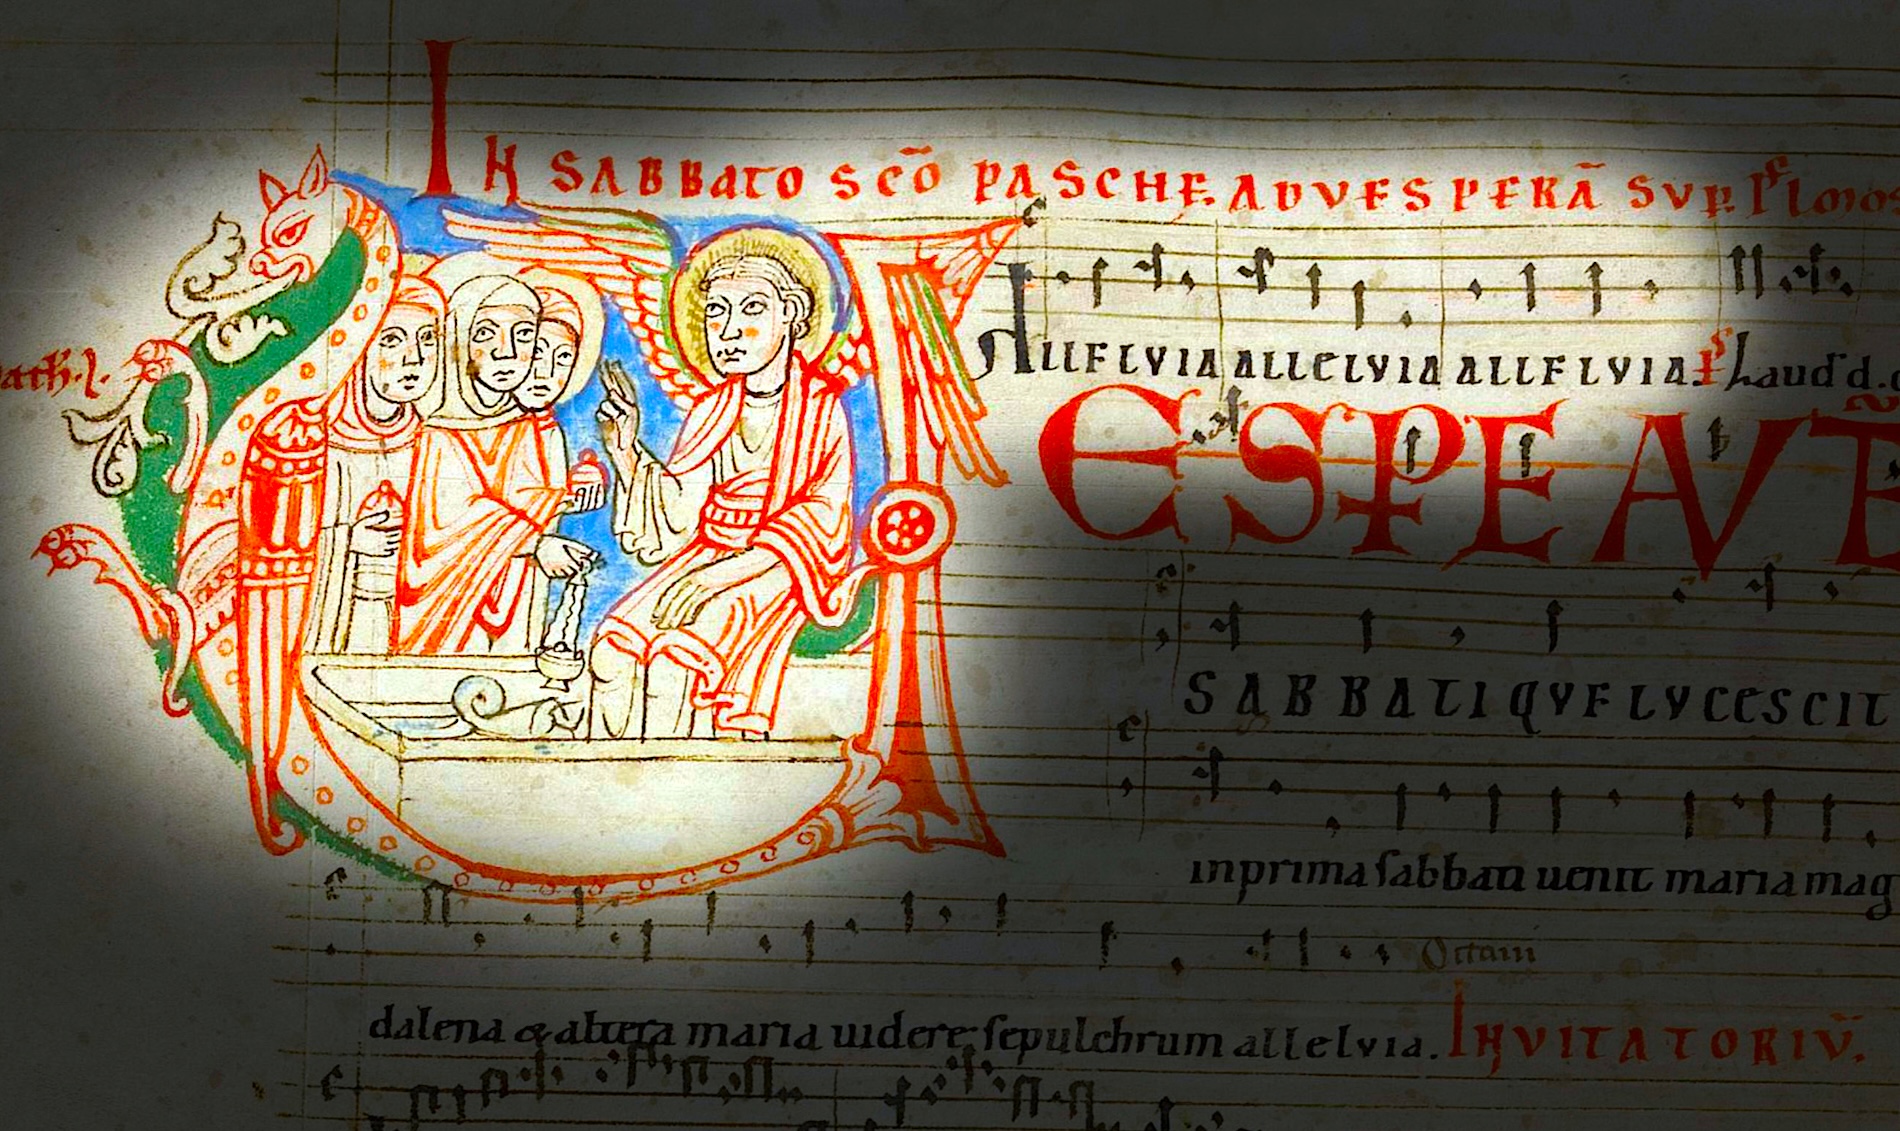 IN SABBATO SCÕ PASCHE. AD VESPERÃ SVP PSLMOS
ath. l.
ALLELVIA ALLELVIA ALLELVIA. PS Laud d.
VESPE AVTE
SABBATI QVE LVCESCIT
in prima sabbati uenit maria mag
Octaui
dalena & altera maria uidere sepulchrum allelvia. INVITATORIṼ.